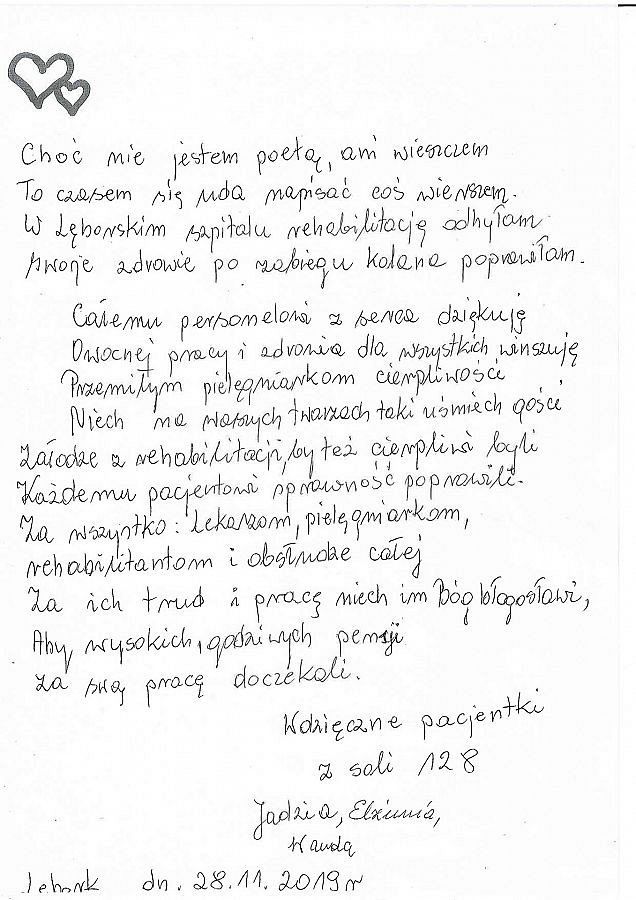 Choć nie jestem poetą, ani wieszczem
To czasem się uda napisać coś wierszem.
W Lęborskim szpitalu rehabilitację odbyłam
swoje zdrowie po zabiegu kolana poprawiłam.
Całemu personelowi z serca dziękuję
Owocnej pracy i zdrowia dla wszystkich winszuję
Przemiłym pielęgniarkom cierpliwości
Niech na waszych twarzach taki uśmiech gości
Załodze z rehabilitacji, by też cierpliwi byli
Każdemu pacjentowi sprawność poprawili.
Za wszystko: Lekarzom, pielęgniarkom,
rehabilitantom i obsłudze całej
Za ich trud i pracę niech im Bóg błogosławi,
Aby wysokich, godziwych pensji
za swą pracę doczekali.
Wdzięczne pacjentki
z sali 128
Jadzia, Elżunia,
Wanda
Lębork dn. 28.11.2019 r